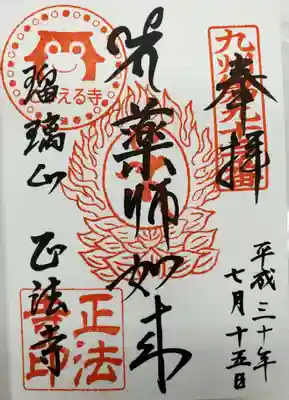 奉拝
平成三十年
七月十五日
薬師如来
瑠璃山 正法寺
える寺
正法